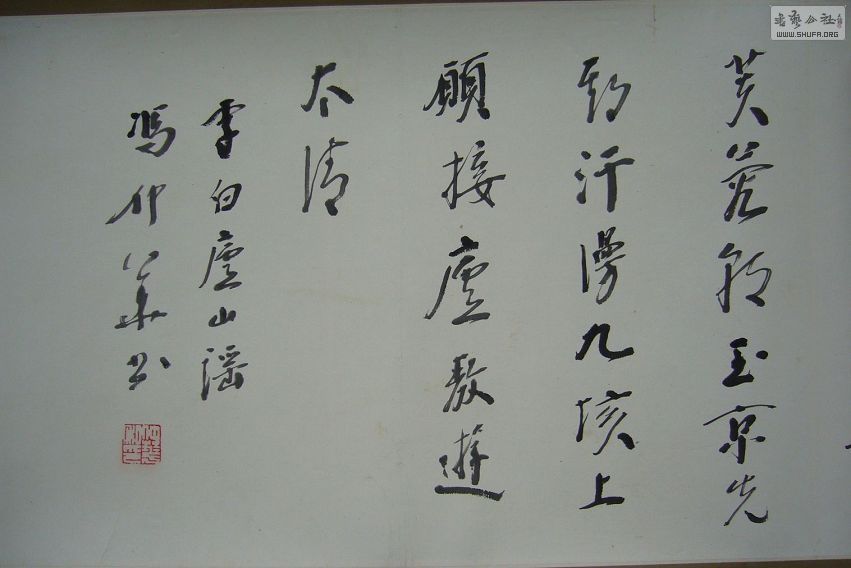 芙蓉朝玉京先
期汗漫九垓上
願接盧敖遊
太清
李白廬山謠
馮仲華书
书艺公社
WWW.SHUFA.ORG